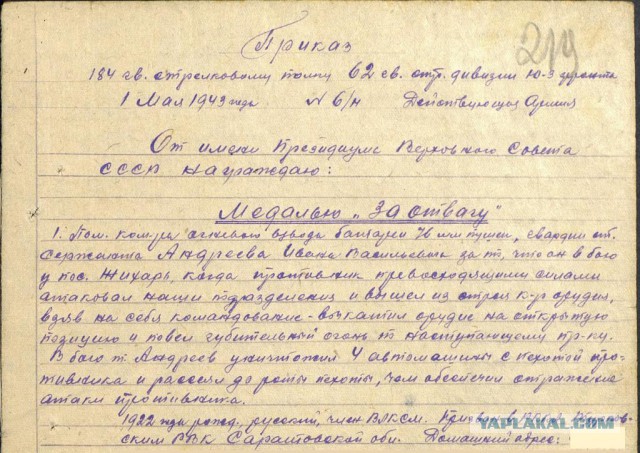 Приказ
219
184 гв. стрелковому полку 62 гв. стр. дивизии Ю-З фронта
1 Мая 1943 года № б/н Действующая Армия
От имени Президиума Верховного Совета
СССР награждаю:
Медалью „За отвагу"
1. Пом. ком-ра огневого взвода батареи 76 мм пушек, гвардии ст.
сержанта Андреева Ивана Васильевича за то, что он в бою
у пос. Жихарь, когда противник превосходящими силами
атаковал наши подразделения и вышел из строя к-р орудия,
взяв на себя командование - выкатил орудие на открытую
позицию и повел губительный огонь по наступающему пр-ку.
В бою т. Андреев уничтожил 4 автомашины с пехотой про-
тивника и рассеял до роты пехоты, чем обеспечил отражение
атаки противника.
1922 года рожд, русский, член ВЛКСМ. Призван в РККА
ским РВК Саратовской обл. Домашний адрес:
YAPLAKAL.COM